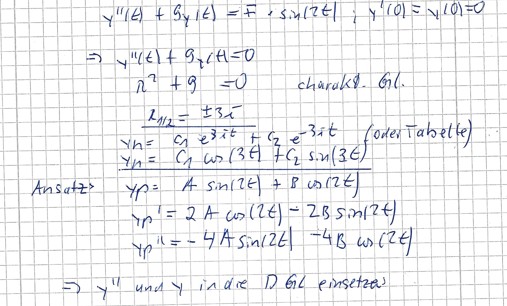 y''(t) + 9y(t) = F · sin(2t) ; y'(0) = y(0) = 0
⇒ y''(t) + 9y(t) = 0
λ² + 9 = 0 charakt. Gl.
λ1/2 = ±3i
yh = C1 e^3it + C2 e^-3it (oder Tabelle)
yh = C1 cos(3t) + C2 sin(3t)
Ansatz: yp = A sin(2t) + B cos(2t)
yp' = 2A cos(2t) - 2B sin(2t)
yp'' = -4A sin(2t) - 4B cos(2t)
⇒ y'' und y in die DGL einsetzen